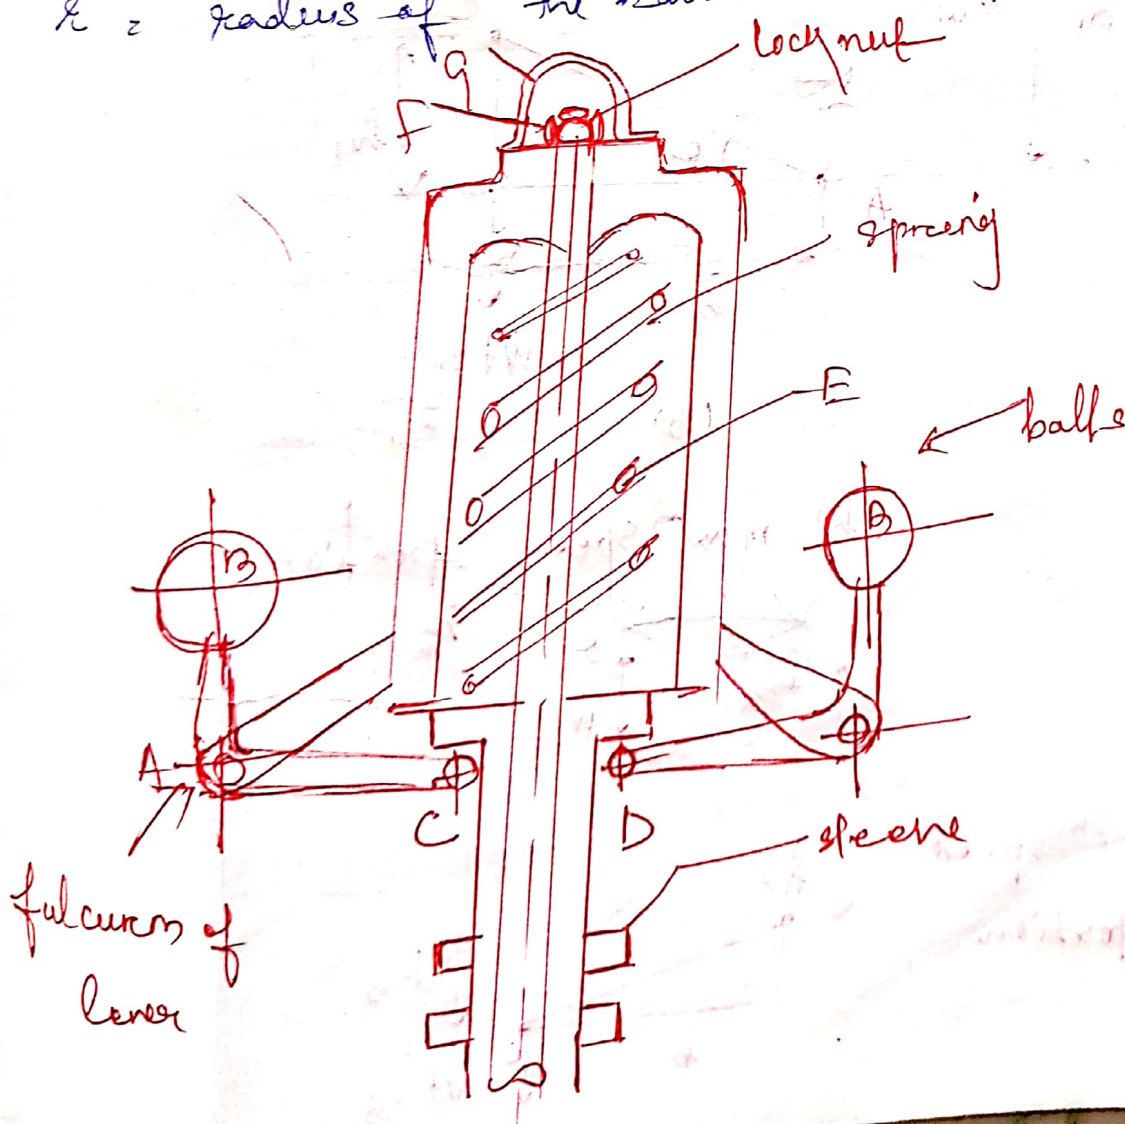 r = radius of the
G
lock nut
F
spring
E
balls
B
B
A
C
D
sleeve
fulcurm of
lever